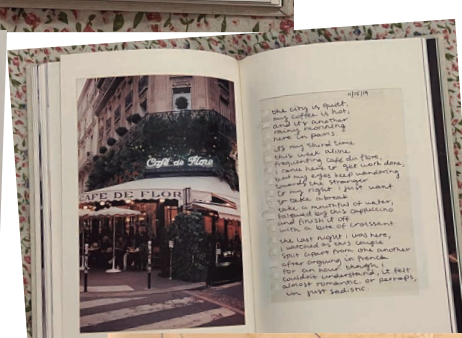 Café de Flore
CAFÉ DE FLOR
11/15/19
the city is quiet,
my coffee is hot,
and it's another
rainy morning
here in paris.
it's my third time
this week alone
frequenting café de flore,
i came here to get work done,
but my eyes keep wandering
towards the stranger
to my right i just want
to take a break
take a mouthful of water,
followed by this cappuccino
and finish it off
with a bite of croissant
the last night i was here,
i watched as this couple
split apart from one another
after arguing in french
for an hour though i
couldn't understand, it felt
almost romantic. or perhaps,
i'm just sadistic.